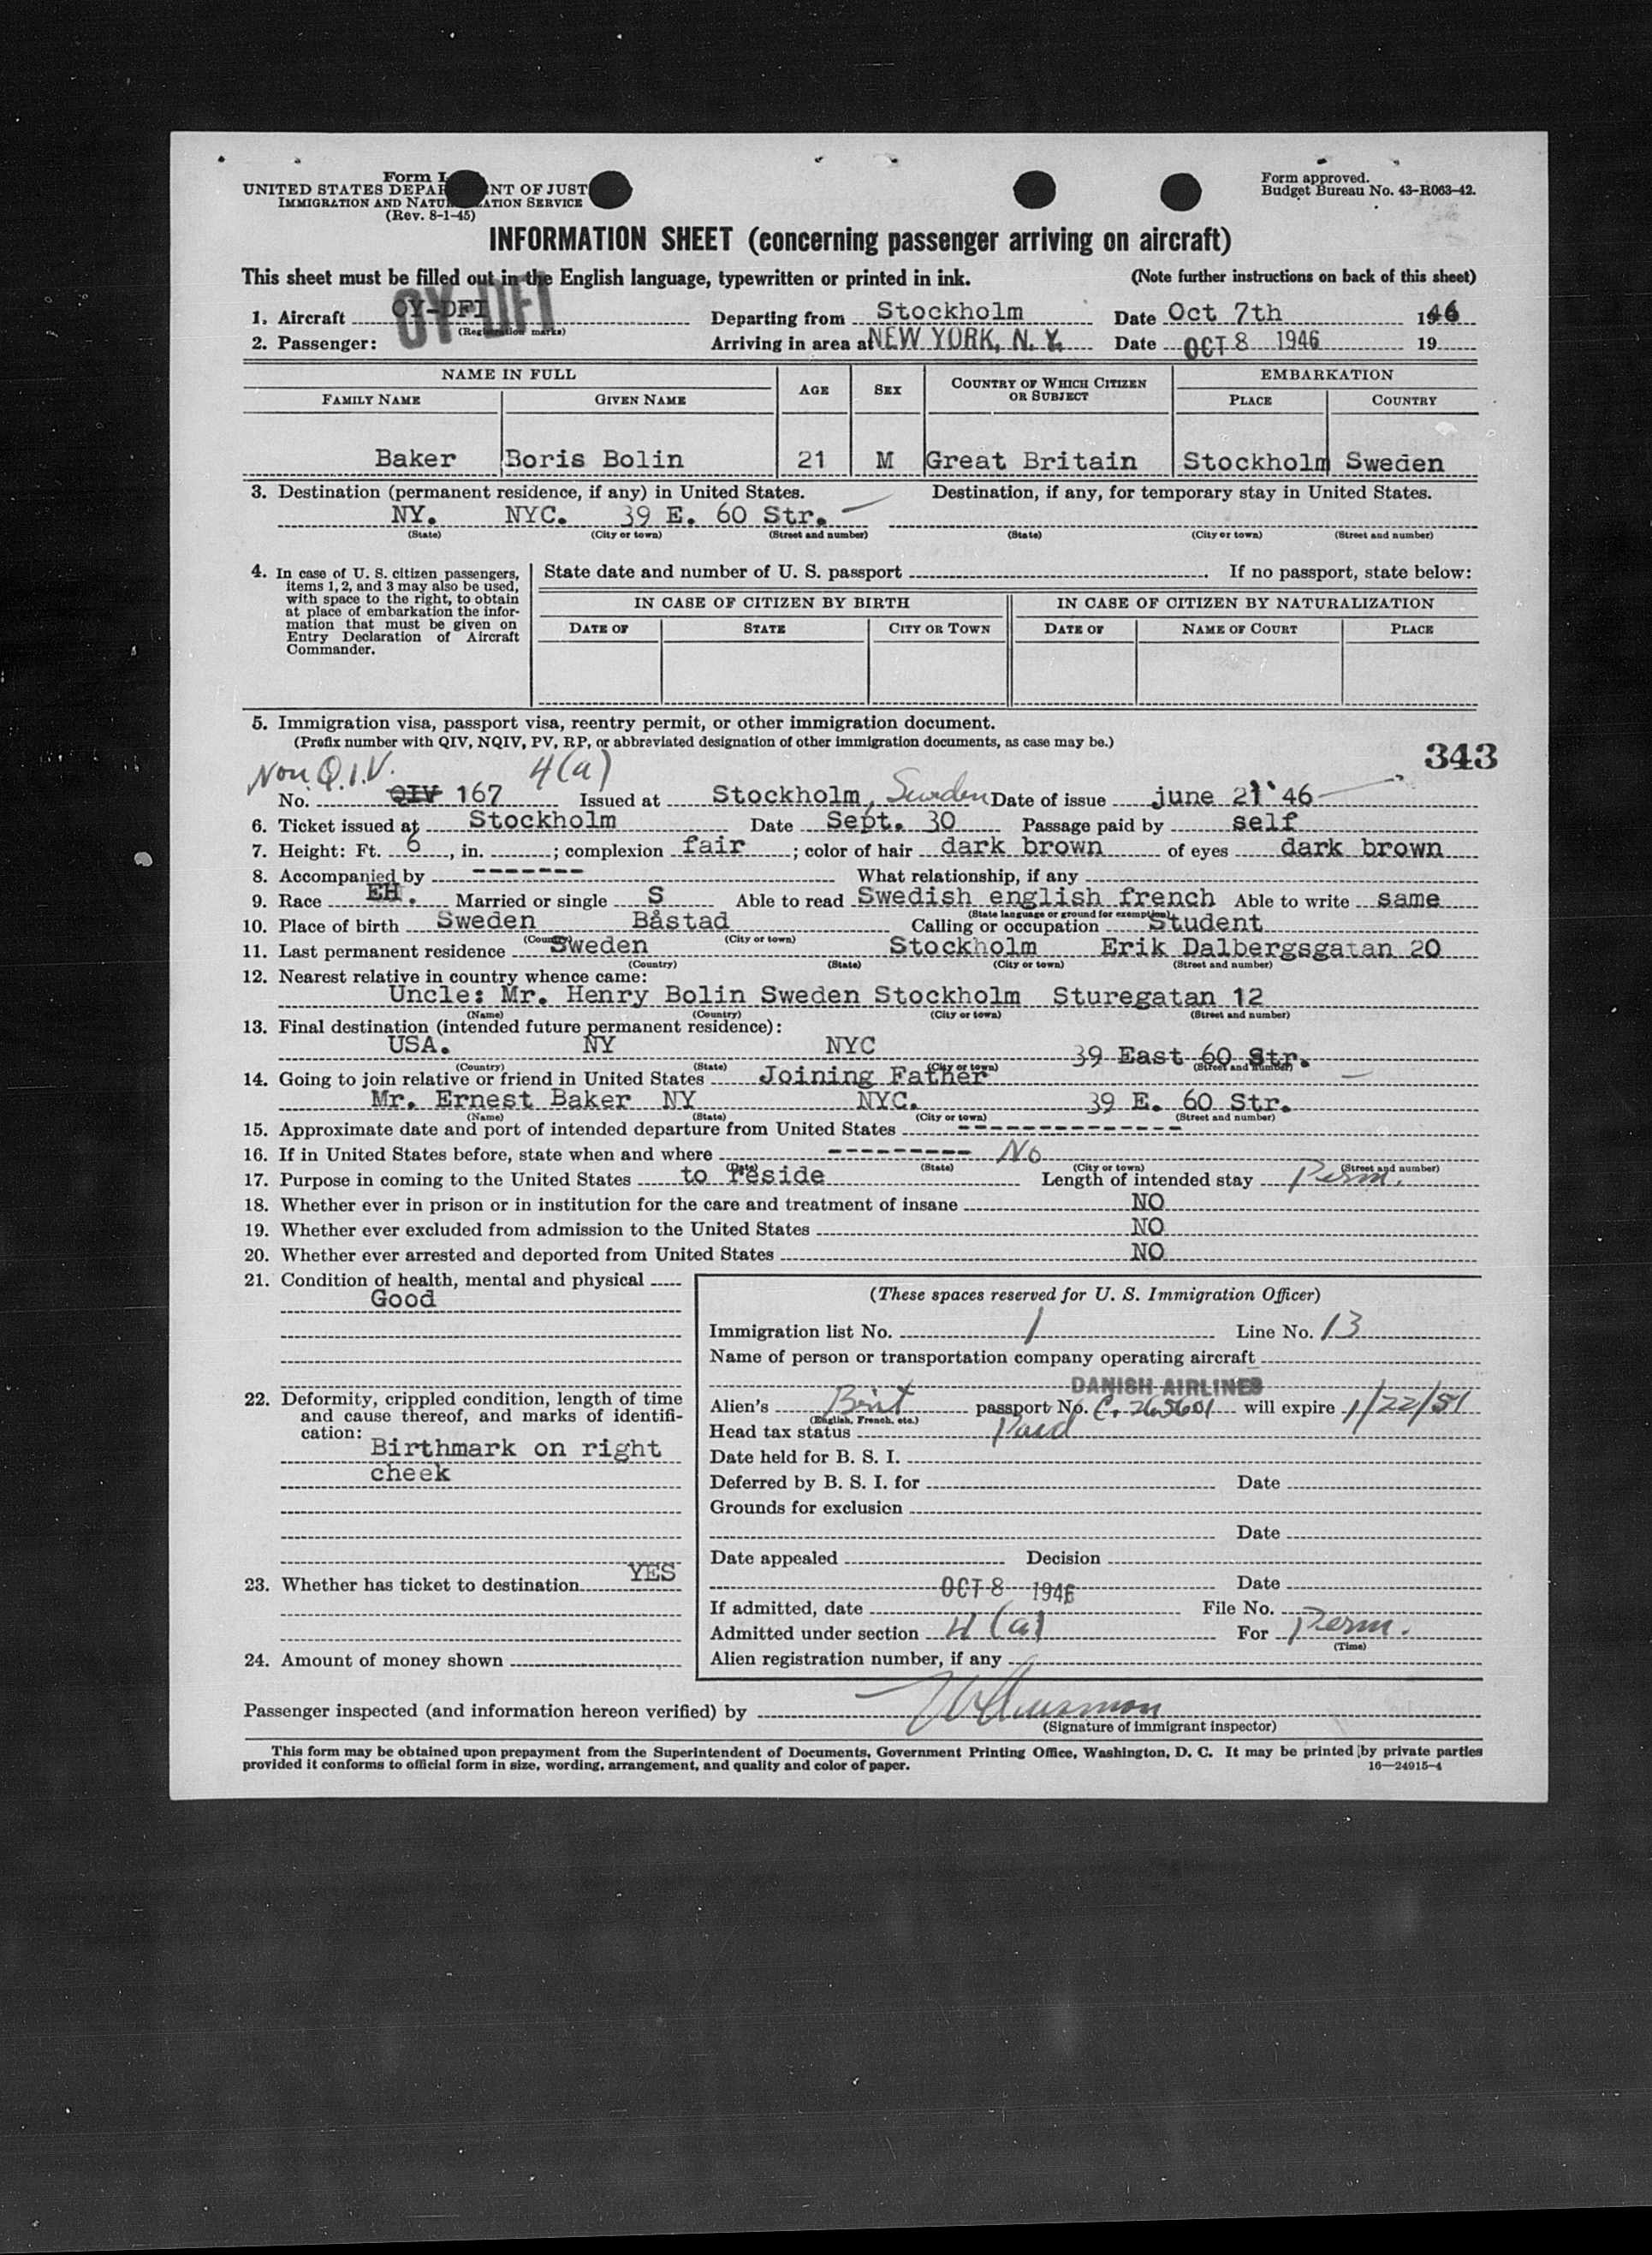 Form I
UNITED STATES DEPAR NT OF JUST
IMMIGRATION AND NATU ATION SERVICE
(Rev. 8-1-45)
Form approved.
Budget Bureau No. 43-R063-42.
INFORMATION SHEET (concerning passenger arriving on aircraft)
This sheet must be filled out in the English language, typewritten or printed in ink. (Note further instructions on back of this sheet)
OY-DFI
1. Aircraft OY-DFI Departing from Stockholm Date Oct 7th 1946
(Registration marks)
2. Passenger: Arriving in area at NEW YORK, N. Y. Date OCT 8 1946 19
NAME IN FULL AGE SEX COUNTRY OF WHICH CITIZEN OR SUBJECT EMBARKATION
FAMILY NAME GIVEN NAME PLACE COUNTRY
Baker Boris Bolin 21 M Great Britain Stockholm Sweden
3. Destination (permanent residence, if any) in United States. Destination, if any, for temporary stay in United States.
NY. NYC. 39 E. 60 Str.
(State) (City or town) (Street and number) (State) (City or town) (Street and number)
4. In case of U. S. citizen passengers, items 1, 2, and 3 may also be used, with space to the right, to obtain at place of embarkation the information that must be given on Entry Declaration of Aircraft Commander.
State date and number of U. S. passport . If no passport, state below:
IN CASE OF CITIZEN BY BIRTH IN CASE OF CITIZEN BY NATURALIZATION
DATE OF STATE CITY OR TOWN DATE OF NAME OF COURT PLACE
5. Immigration visa, passport visa, reentry permit, or other immigration document.
(Prefix number with QIV, NQIV, PV, RP, or abbreviated designation of other immigration documents, as case may be.)
343
Non Q.I.V. 4(a)
No. QIV 167 Issued at Stockholm, Sweden Date of issue june 21 '46
6. Ticket issued at Stockholm Date Sept. 30 Passage paid by self
7. Height: Ft. 6, in. ; complexion fair ; color of hair dark brown of eyes dark brown
8. Accompanied by ------- What relationship, if any
9. Race EH. Married or single S Able to read Swedish english french Able to write same
(State language or ground for exemption)
10. Place of birth Sweden Båstad Calling or occupation Student
(Country) (City or town)
11. Last permanent residence Sweden Stockholm Erik Dalbergsgatan 20
(Country) (State) (City or town) (Street and number)
12. Nearest relative in country whence came:
Uncle: Mr. Henry Bolin Sweden Stockholm Sturegatan 12
(Name) (Country) (City or town) (Street and number)
13. Final destination (intended future permanent residence):
USA. NY NYC 39 East 60 Str.
(Country) (State) (City or town) (Street and number)
14. Going to join relative or friend in United States Joining Father
Mr. Ernest Baker NY NYC. 39 E. 60 Str.
(Name) (State) (City or town) (Street and number)
15. Approximate date and port of intended departure from United States --------------
16. If in United States before, state when and where --------- No
(Date) (State) (City or town) (Street and number)
17. Purpose in coming to the United States to reside Length of intended stay Perm.
18. Whether ever in prison or in institution for the care and treatment of insane NO
19. Whether ever excluded from admission to the United States NO
20. Whether ever arrested and deported from United States NO
21. Condition of health, mental and physical
Good
22. Deformity, crippled condition, length of time
and cause thereof, and marks of identifi-
cation:
Birthmark on right
cheek
23. Whether has ticket to destination YES
24. Amount of money shown
(These spaces reserved for U. S. Immigration Officer)
Immigration list No. 1 Line No. 13
Name of person or transportation company operating aircraft
DANISH AIRLINES
Alien's Brit passport No. C. 265601 will expire 1/22/51
(English, French, etc.)
Head tax status Paid
Date held for B. S. I.
Deferred by B. S. I. for Date
Grounds for exclusion
Date
Date appealed Decision
Date
OCT 8 1946
If admitted, date File No.
Admitted under section 4(a) For Perm.
(Time)
Alien registration number, if any
Passenger inspected (and information hereon verified) by
(Signature of immigrant inspector)
This form may be obtained upon prepayment from the Superintendent of Documents, Government Printing Office, Washington, D. C. It may be printed by private parties
provided it conforms to official form in size, wording, arrangement, and quality and color of paper. 16—24915-4